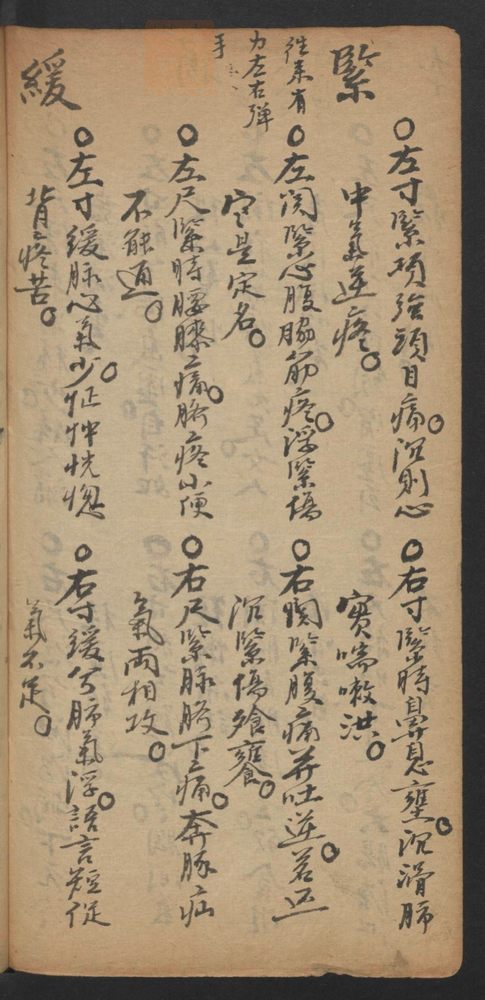 緊
往來有
力左右弹
手
左寸緊碩強頭目痛。沉則心
中氣逆疼。
右寸緊時鼻息壅。沉滑肺
實喘嗽洪。
左関緊心腹脇筋疼。浮緊傷
寒是定名。
右関緊腹痛并吐逆。若還
沉緊傷飱饔。
左尺緊時腰膝痛。臍疼小便
不能通。
右尺緊脉臍下痛。奔豚疝
氣兩相攻。
緩
左寸緩脉心氣少。怔忡恍惚
背疼苦。
右寸緩兮肺氣浮。語言短促
氣不足。